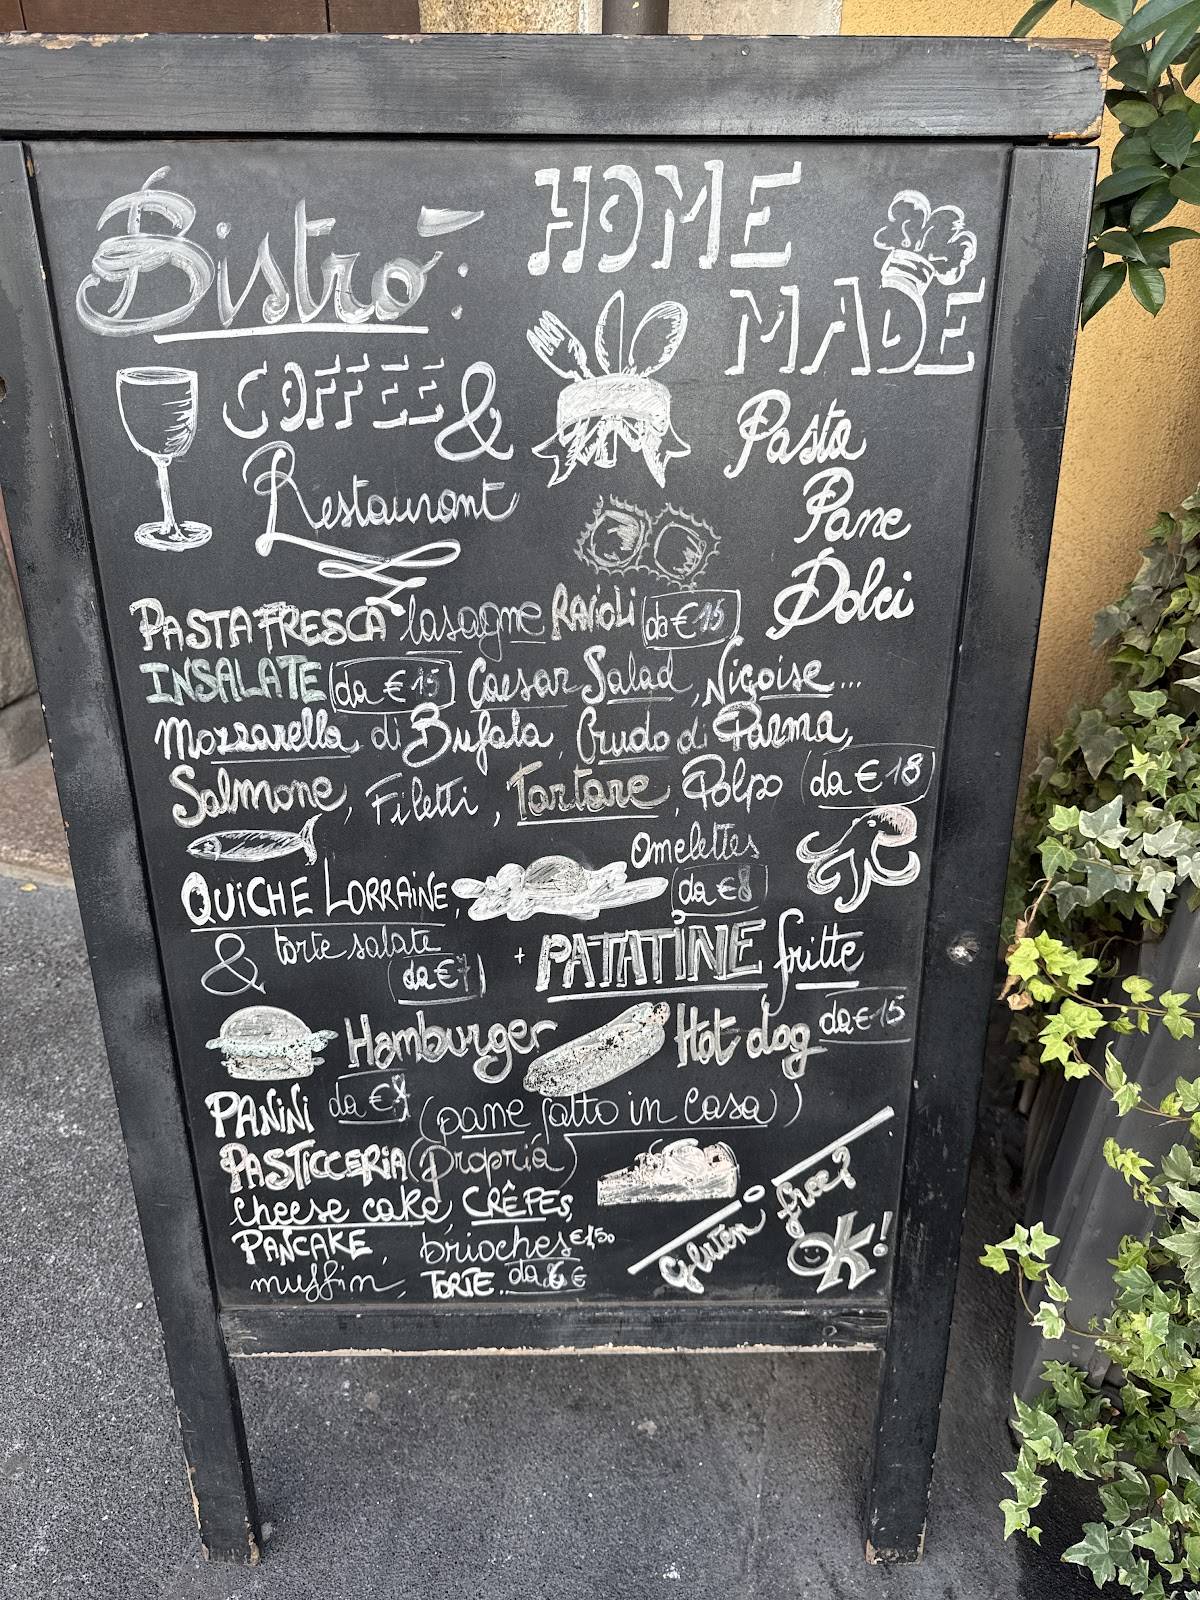 Bistrò:
COFFEE &
Restaurant
HOME
MADE
Pasta
Pane
Dolci
PASTA FRESCA lasagne RAViOLi da €15
INSALATE da €15 Caesar Salad, Niçoise...
Mozzarella di Bufala, Crudo di Parma,
Salmone, Filetti, Tartare, Polpo da €18
QUiCHE LORRAiNE, omelettes da €8
& torte salate da €7 + PATATiNE fritte
Hamburger Hot dog da €15
PANiNi da € (pane fatto in Casa)
PASTiCCERiA (propria)
cheese cake, CRÊPES,
PANCAKE, brioches €1,50
muffin, TORTE... da €
Gluten free? OK!